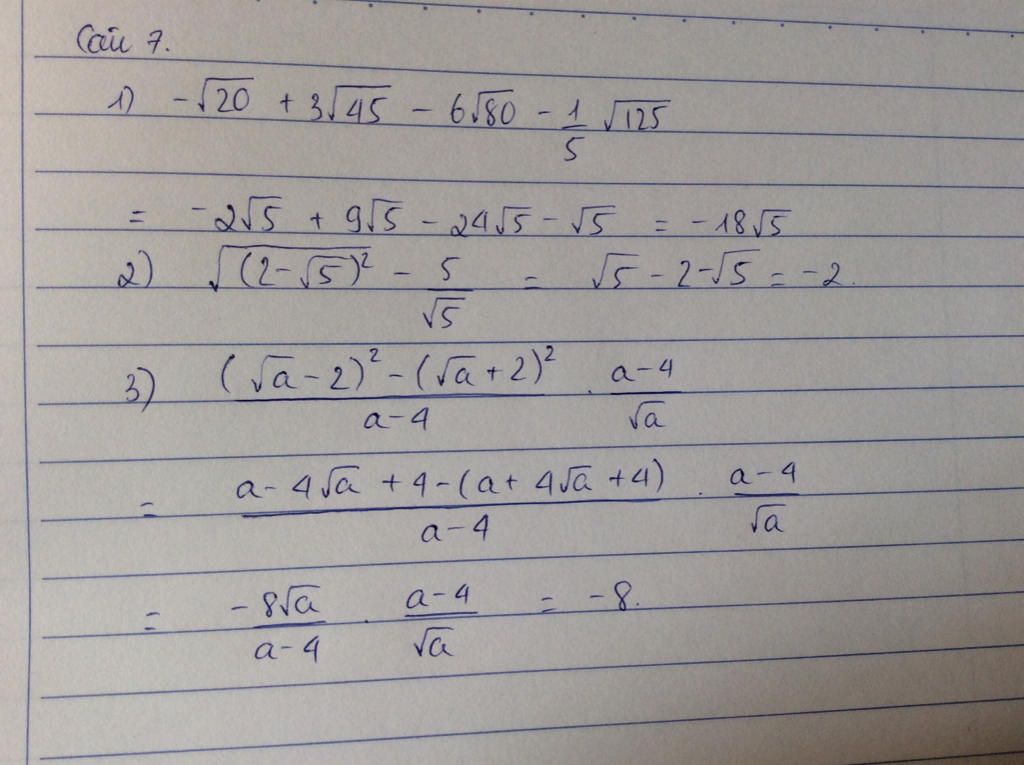 Câu 7.
1) -√20 + 3√45 - 6√80 - 1/5 √125
= -2√5 + 9√5 - 24√5 - √5 = -18√5
2) √(2-√5)² - 5/√5 = √5 - 2 - √5 = -2.
3) ((√a - 2)² - (√a + 2)²)/(a - 4) . (a - 4)/√a
= (a - 4√a + 4 - (a + 4√a + 4))/(a - 4) . (a - 4)/√a
= -8√a/(a - 4) . (a - 4)/√a = -8.